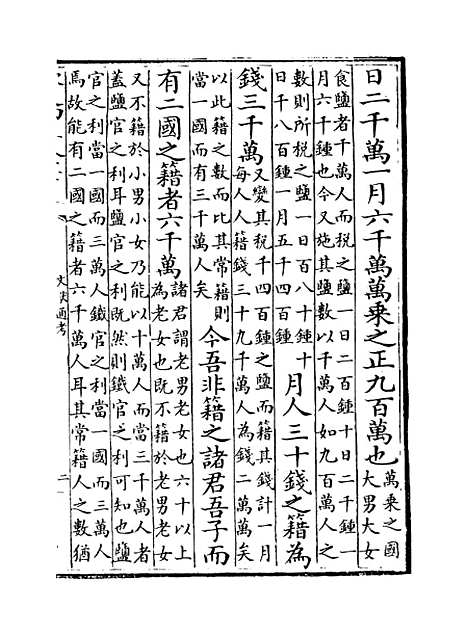 日二千萬一月六千萬萬乘之正九百萬也
萬乘之國
大男大女
食鹽者千萬人而税之鹽一日二百鍾十日二千鍾一
月六千鍾也今又施其鹽數以千萬人如九百萬人之
數則所税之鹽一日百八十鍾十
日千八百鍾一月五千四百鍾
月人三十錢之籍為
錢三千萬
又變其税千四百鍾之鹽而籍其錢計一月
每人人籍錢三十九千萬人為錢二萬萬矣
以此籍之數而比其常籍則
當一國而有三千萬人矣
今吾非籍之諸君吾子而
有二國之籍者六千萬
諸君謂老男老女也六十以上
為老女也既不籍於老男老女
又不籍於小男小女乃能以十萬人而當三千萬人者
蓋鹽官之利耳鹽官之利既然則鐵官之利可知也鹽
官之利當一國而三萬人鐵官之利當一國而三萬人
焉故能有二國之籍者六千萬人耳其常籍人之數猶
文獻通考